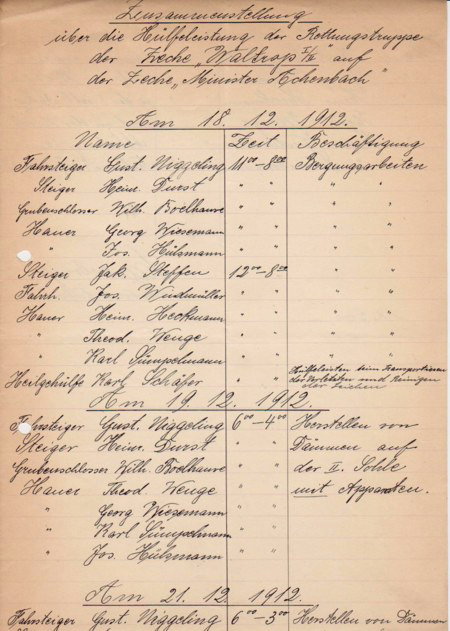 Zusammenstellung
über die Hülfeleistung der Rettungstruppe
der Zeche „Waltrop I/II" auf
der Zeche „Minister Achenbach"
Am 18. 12. 1912.
Name Zeit Beschäftigung
Fahrsteiger Gust. Niggeling 11⁰⁰–8⁰⁰ Bergungsarbeiten
Steiger Hein. Durst " " " "
Grubenschlosser Wilh. Boelhauve " " " "
Hauer Georg Wiesemann " " " "
" Jos. Hülsmann " " " "
Steiger Jak. Steffen 12⁰⁰–8⁰⁰ " "
Fahrh. Jos. Windmüller " " " "
Hauer Hein. Heckmann " " " "
" Theod. Wenge " " " "
" Karl Sümpelmann " " " "
Heilgehülfe Karl Schäfer " " Hülfeleisten beim Transportieren
der Verletzten und Reinigen
der Leichen
Am 19. 12. 1912.
Fahrsteiger Gust. Niggeling 6⁰⁰–4⁰⁰ Herstellen von
Steiger Hein. Durst " " Dämmen auf
Grubenschlosser Wilh. Boelhauve " " der II. Sohle
Hauer Theod. Wenge " " mit Apparaten.
" Georg Wiesemann " "
" Karl Sümpelmann " "
" Jos. Hülsmann " "
Am 21. 12. 1912.
Fahrsteiger Gust. Niggeling 6⁰⁰–3⁰⁰ Herstellen von Dämmen